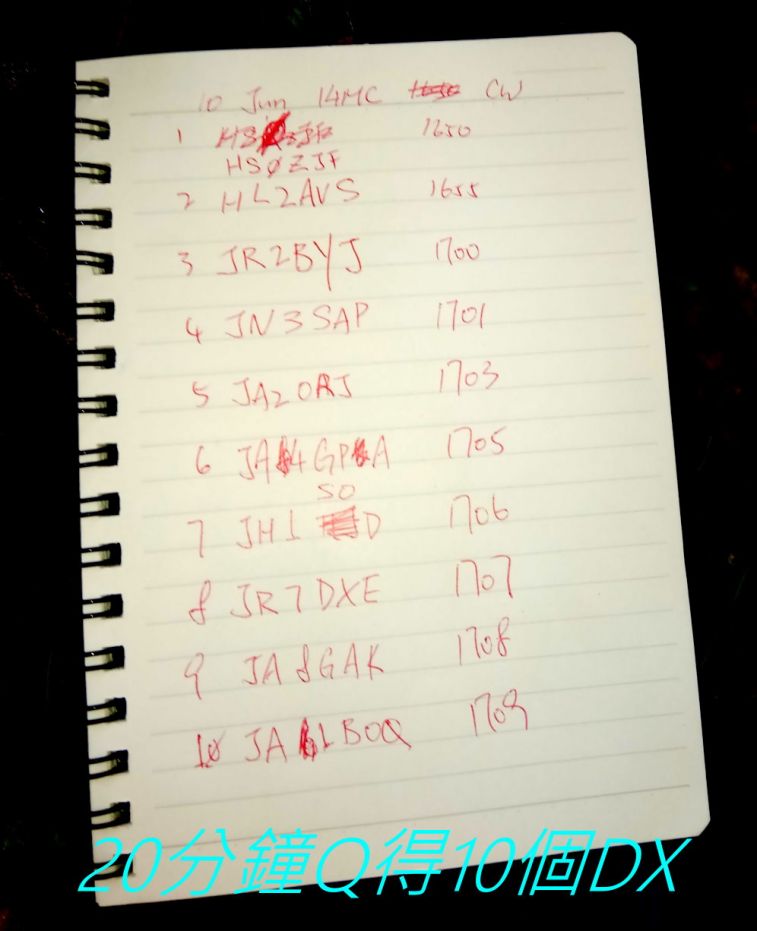 10 Jun 14MC CW
1 1650
HSØZJF
2 HL2AVS 1655
3 JR2BYJ 1700
4 JN3SAP 1701
5 JA2ORJ 1703
6 JA4GPA 1705
SO
7 JH1 D 1706
8 JR7DXE 1707
9 JA8GAK 1708
10 JA1BOQ 1709
20分鐘Q得10個DX